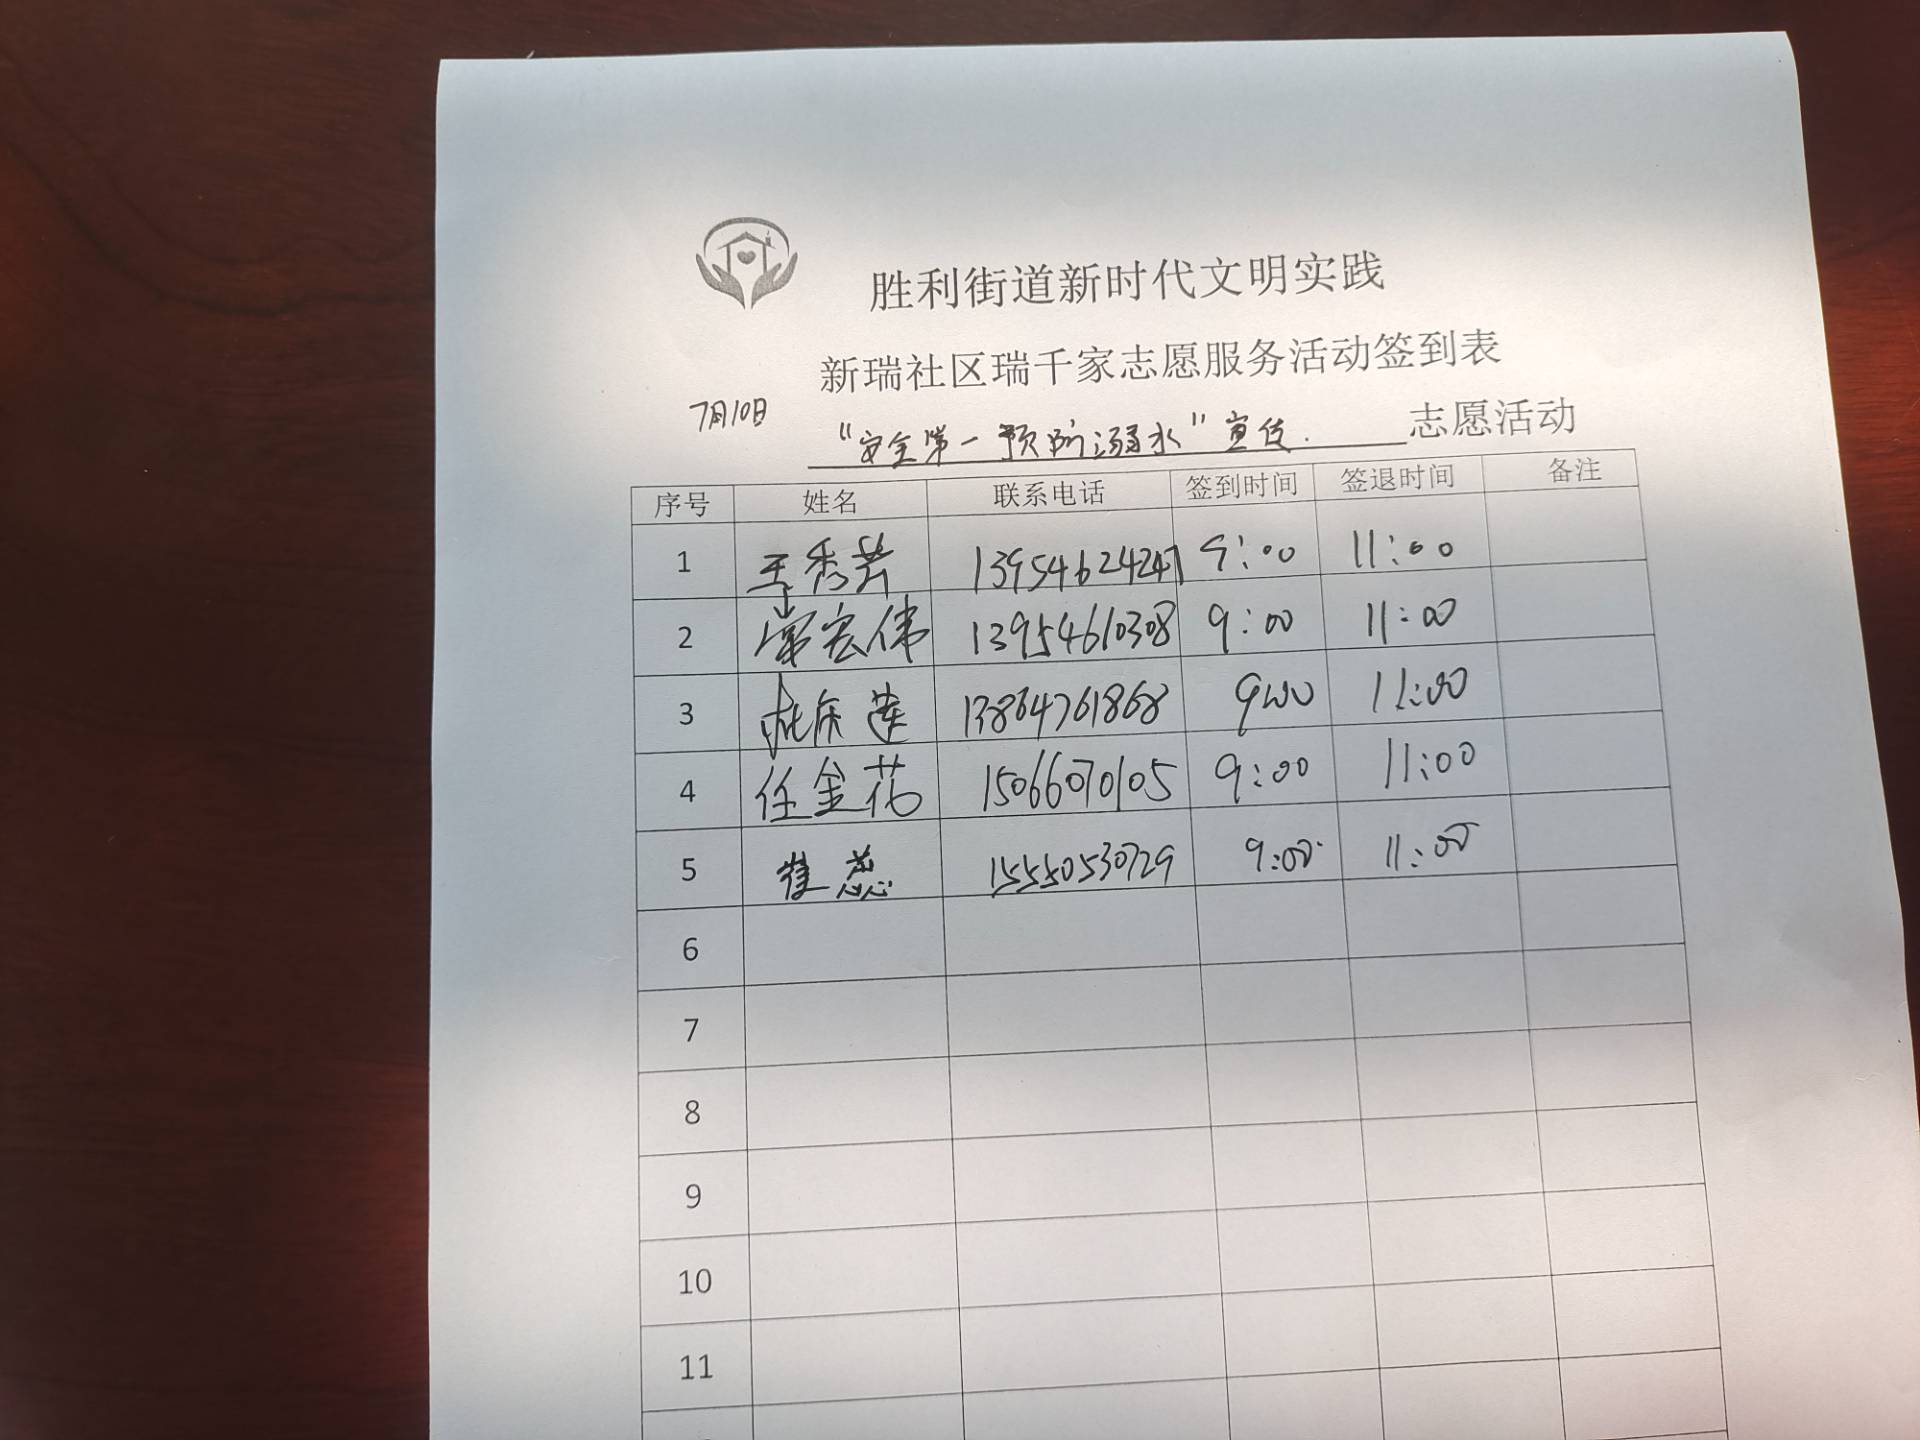 胜利街道新时代文明实践
新瑞社区瑞千家志愿服务活动签到表
7月10日
“安全第一预防溺水”宣传. 志愿活动
序号 姓名 联系电话 签到时间 签退时间 备注
1 王秀芳 13954624247 9:00 11:00
2 常宏伟 13954610308 9:00 11:00
3 13864761868 9:00 11:00
4 任金花 15066070105 9:00 11:00
5 崔蕊 15550530729 9:00 11:00
6
7
8
9
10
11